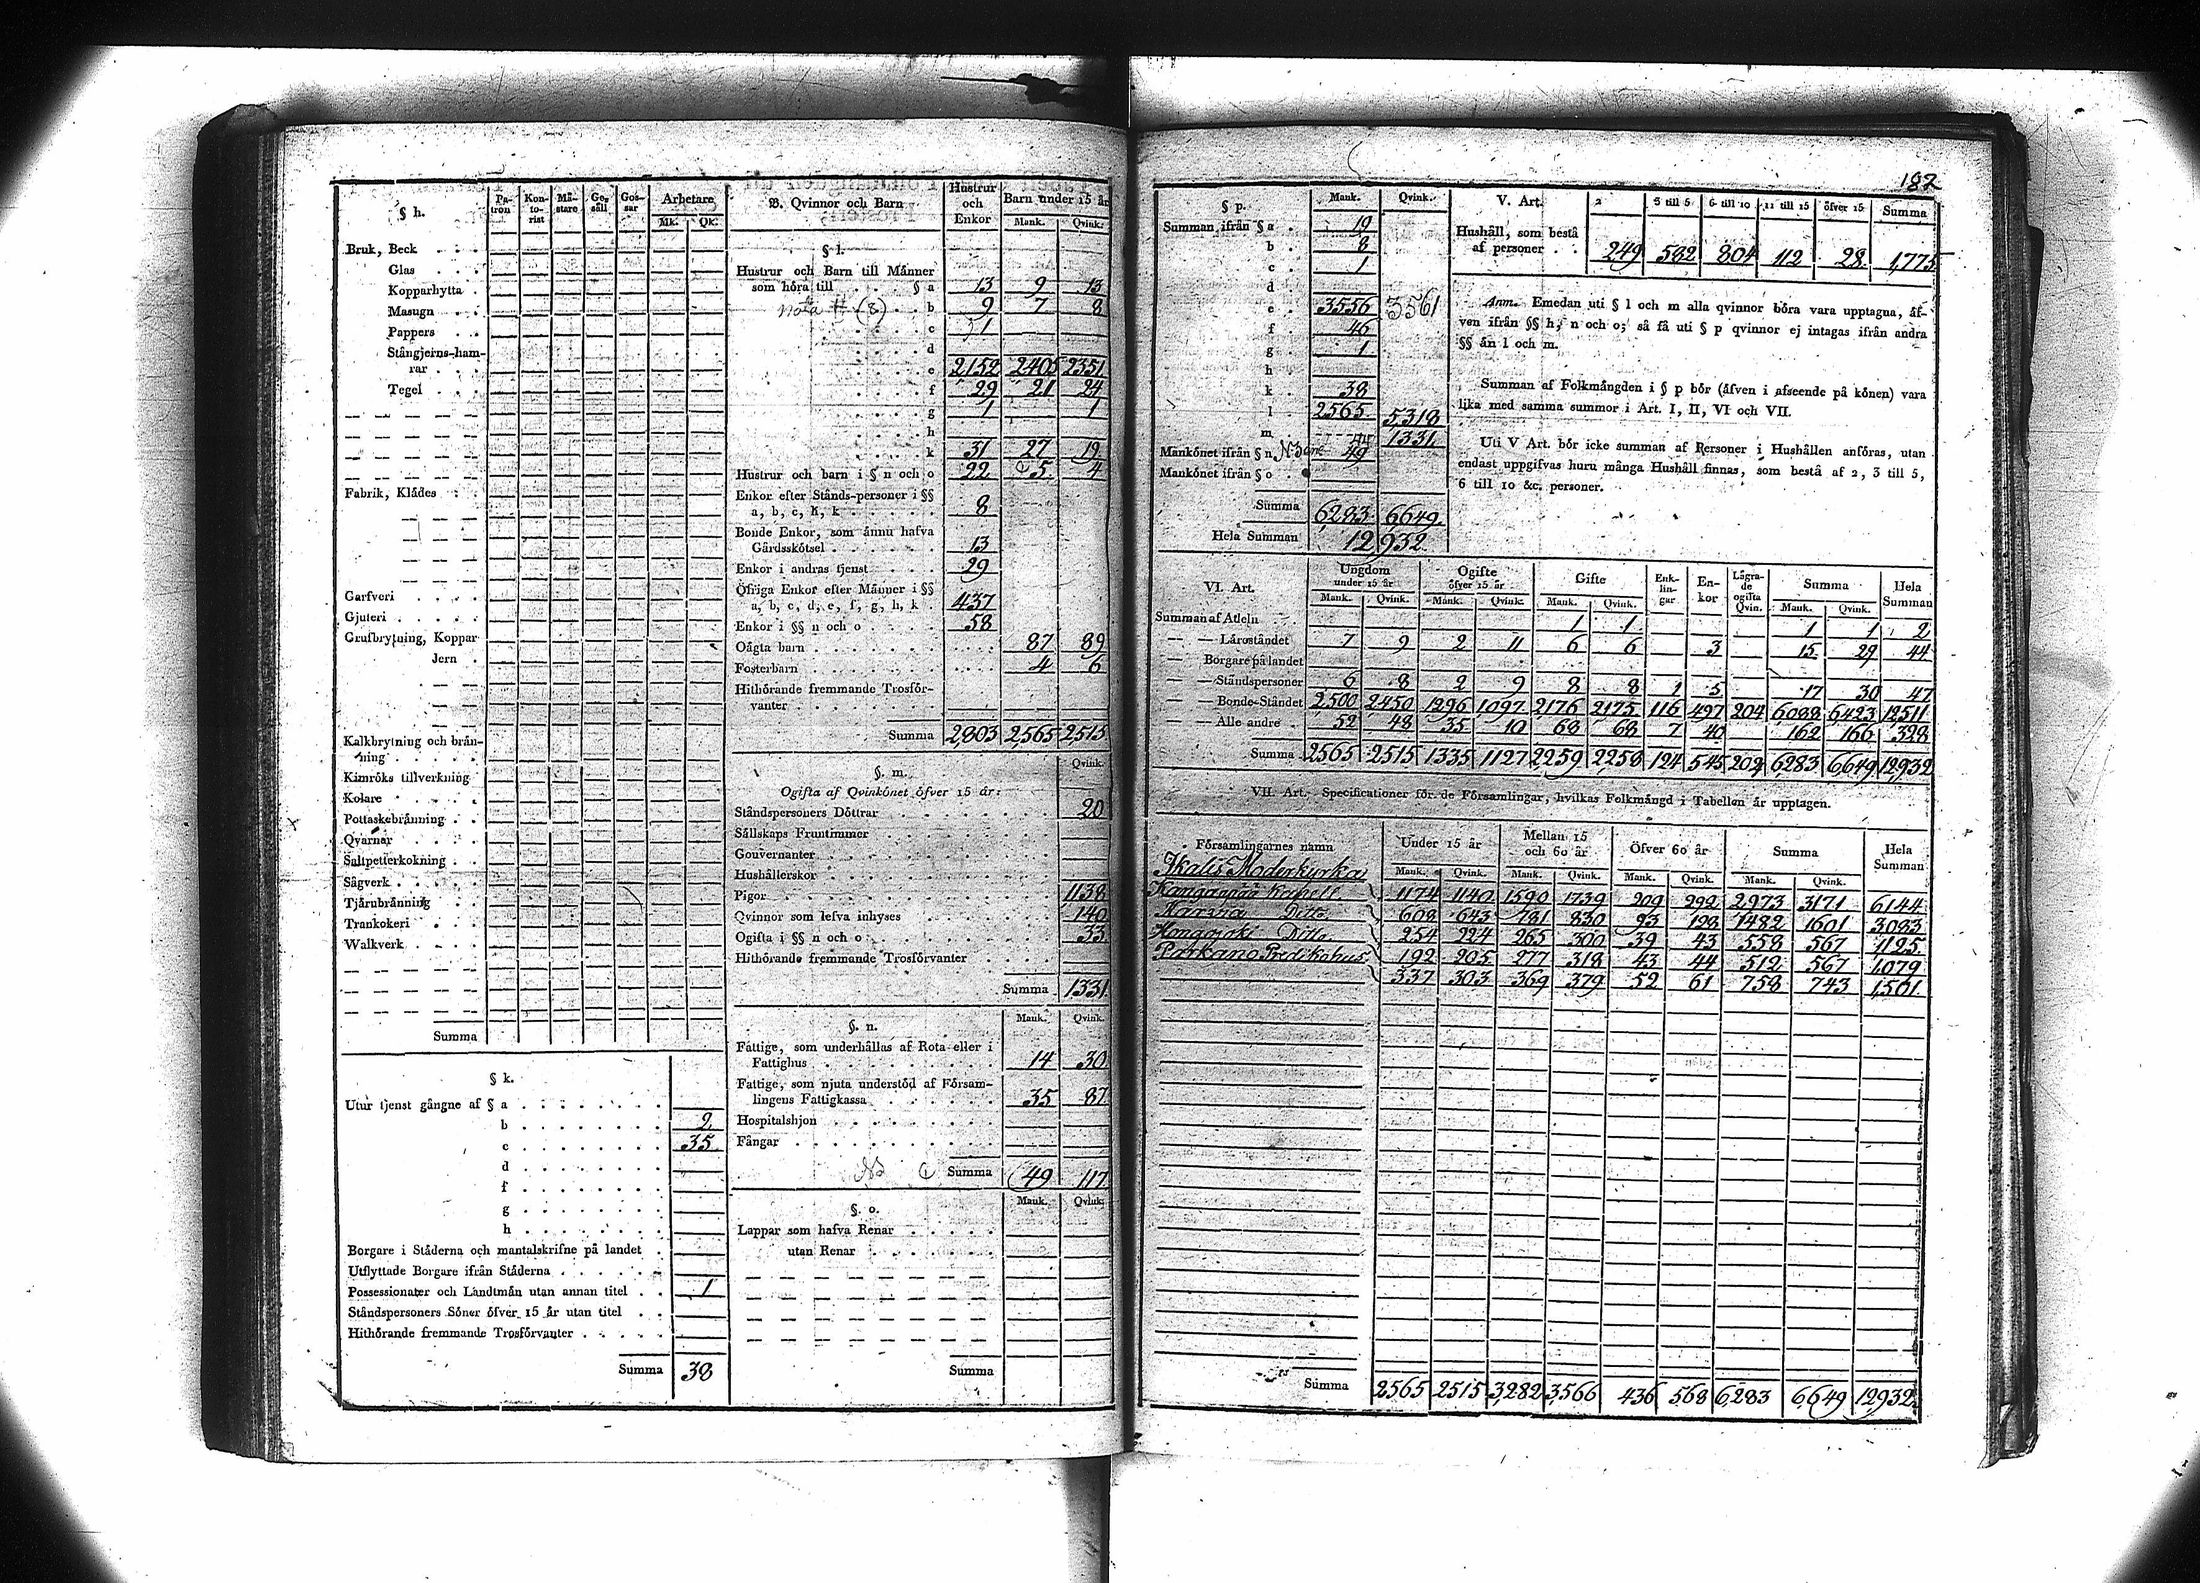 § h.
Patron Kontorist Mästare Gesäll Gossar Arbetare
Mk. Qk.
Bruk, Beck
Glas
Kopparhytta
Masugn
Pappers
Stångjerns-hamrar
Tegel
Fabrik, Klådes
Garfveri
Gjuteri
Grufbrytning, Koppar
Jern
Kalkbrytning och brän-
ning
Kimröks tillverkning
Kolare
Pottaskebränning
Qvarnar
Saltpetterkokning
Sågverk
Tjärubränning
Trankokeri
Walkverk
Summa
§ k.
Utur tjenst gångne af § a
b 2
c 35
d
f
g
h
Borgare i Städerna och mantalskrifne på landet
Utflyttade Borgare ifrån Städerna
Possessionater och Landtmän utan annan titel 1
Ståndspersoners Söner öfver 15 år utan titel
Hithörande fremmande Trosförvanter
Summa 38
B. Qvinnor och Barn
Hustrur och Enkor
Barn under 15 år
Mank. Qvink.
§ l.
Hustrur och Barn till Männer
som höra till § a 13 9 13
nota (8) b 9 7 8
c 1
d
e 2152 2405 2351
f 29 21 24
g 1 1
h
k 31 27 19
Hustrur och barn i § n och o 22 5 4
Enkor efter Stånds-personer i §§
a, b, c, h, k 8
Bonde Enkor, som ännu hafva
Gårdsskötsel 13
Enkor i andras tjenst 29
Öfriga Enkor efter Männer i §§
a, b, c, d, e, f, g, h, k 437
Enkor i §§ n och o 58
Oägta barn 87 89
Fosterbarn 4 6
Hithörande fremmande Trosför-
vanter
Summa 2,803 2,565 2,515
§. m. Qvink.
Ogifta af Qvinkönet öfver 15 år:
Ståndspersoners Döttrar 20
Sällskaps Fruntimmer
Gouvernanter
Hushållerskor
Pigor 1138
Qvinnor som lefva inhyses 140
Ogifta i §§ n och o 33
Hithörande fremmande Trosförvanter
Summa 1331
§. n. Mank. Qvink.
Fattige, som underhållas af Rota eller i
Fattighus 14 30
Fattige, som njuta understöd af Försam-
lingens Fattigkassa 35 87
Hospitalshjon
Fångar
Summa 49 117
§. o. Mank. Qvink.
Lappar som hafva Renar
utan Renar
Summa
182
§ p. Mank. Qvink.
Summan ifrån § a 19
b 8
c 1
d
e 3556 3561
f 46
g 1
h
k 38
l 2565 5318
m 1331
Mankönet ifrån § n 49
Mankönet ifrån § o
Summa 6,283 6,649
Hela Summan 12,932
V. Art. 2 3 till 5 6 till 10 11 till 15 öfver 15 Summa
Hushåll, som bestå
af personer 249 582 804 112 28 1,775
Anm. Emedan uti § l och m alla qvinnor böra vara upptagna, äf-
ven ifrån §§ h, n och o; så få uti § p qvinnor ej intagas ifrån andra
§§ än l och m.
Summan af Folkmängden i § p bör (äfven i afseende på könen) vara
lika med samma summor i Art. I, II, VI och VII.
Uti V Art. bör icke summan af Personer i Hushållen anföras, utan
endast uppgifvas huru många Hushåll finnas, som bestå af 2, 3 till 5,
6 till 10 &c. personer.
VI. Art.
Ungdom under 15 år Ogifte öfver 15 år Gifte Enklingar Enkor Lägrade ogifta Qvin. Summa Hela Summan
Mank. Qvink. Mank. Qvink. Mank. Qvink. Mank. Qvink.
Summan af Adeln 1 1 1 1 2
— — Läroståndet 7 9 2 11 6 6 3 15 29 44
— Borgare på landet
— — Ståndspersoner 6 8 2 9 8 8 1 5 17 30 47
— — Bonde-Ståndet 2500 2450 1296 1097 2176 2175 116 497 204 6088 6423 12511
— — Alle andre 52 48 35 10 68 68 7 40 162 166 328
Summa 2565 2515 1335 1127 2,259 2,258 124 545 204 6,283 6,649 12,932
VII. Art. Specificationer för de Församlingar, hvilkas Folkmängd i Tabellen är upptagen.
Församlingarnes namn
Under 15 år Mellan 15 och 60 år Öfver 60 år Summa Hela Summan
Mank. Qvink. Mank. Qvink. Mank. Qvink. Mank. Qvink.
Ikalis Moderkyrka 1174 1140 1590 1739 209 292 2,973 3171 6,144
Kangaspää Kapell 608 643 781 830 93 128 1482 1601 3,083
Karvia Ditto 254 224 265 300 39 43 558 567 1,125
Kongojoki Ditto 192 205 277 318 43 44 512 567 1,079
Parkano Predikohus 337 303 369 379 52 61 758 743 1,501
Summa 2565 2515 3,282 3,566 436 568 6,283 6,649 12,932